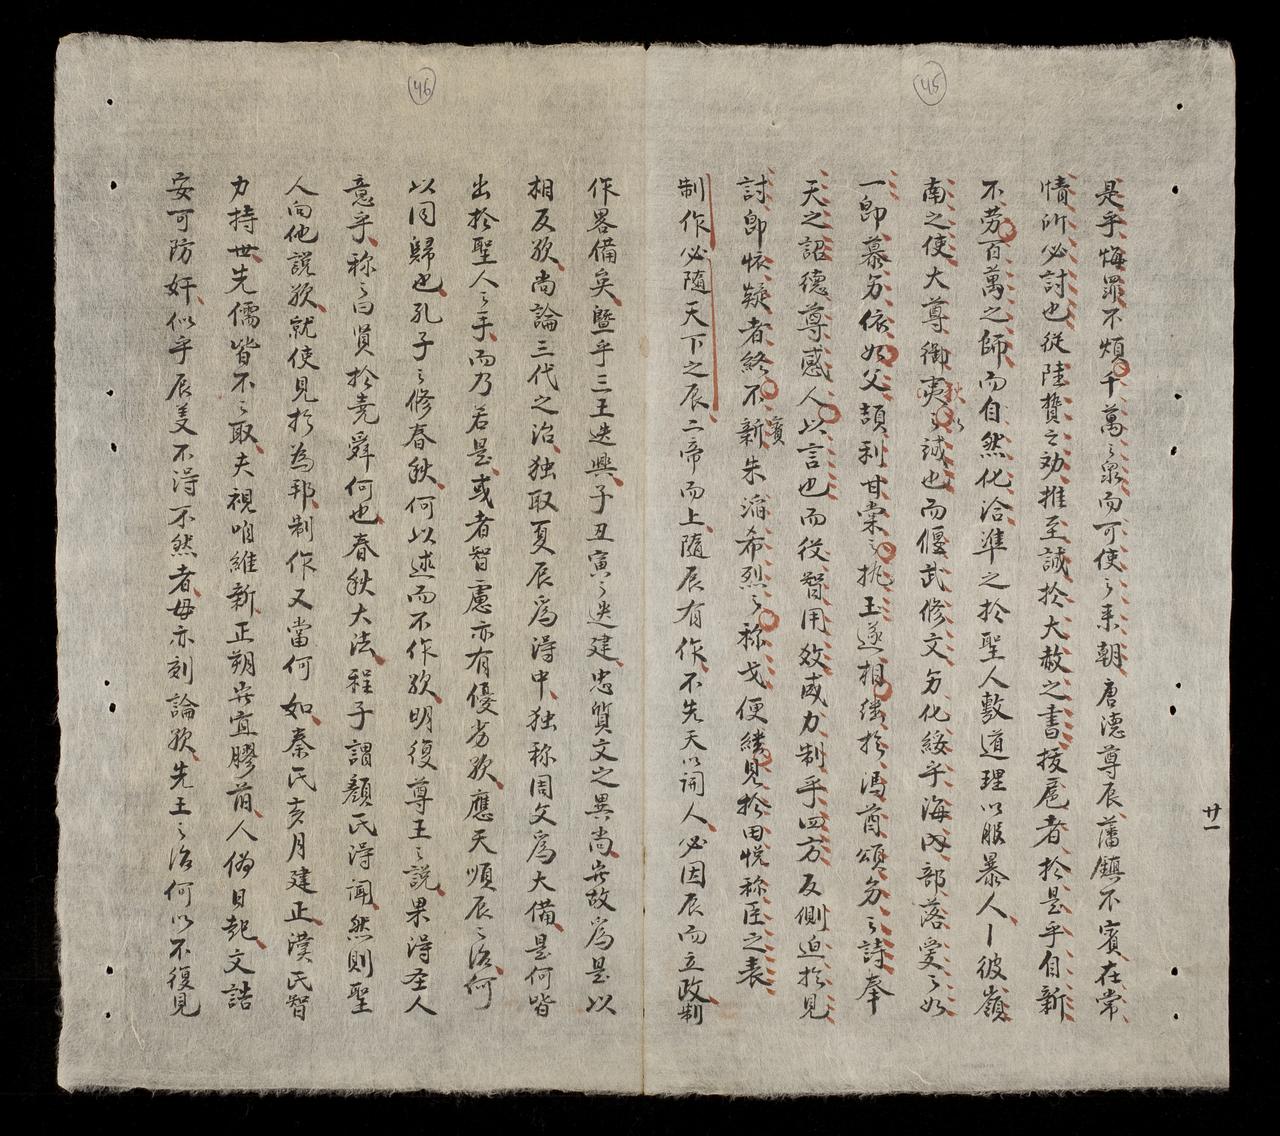 45
是乎悔罪不煩千萬〻眾而可使〻来朝唐德尊辰藩鎮不賓在常
情所必討也從陸贄之効推至誠於大赦之書拔扈者於是乎自新
不劳百萬之師而自然化洽準之於聖人敷道理以服暴人丨彼嶺
南之使大尊御夷〻誠也而偃武修文夯化綏乎海內部落爱〻如
狄
一郎慕夯依如父頡利甘棠〻执玉遂相继於馮酋頌夯〻詩奉
天之詔德尊感人以言也而役智用效威力制乎四方反側迫於見
討即怀疑者終不新朱滔希烈〻称戈便継見於田悦称臣之表
賓
制作必隨天下之辰二帝而上隨辰有作不先天以開人必因辰而立政制
廿一
46
作畧備矣暨乎三王迭興子丑寅〻迭建忠質文之異尚岂故為是以
相反欤尚論三代之治独取夏辰為淂中独称周文為大備是何皆
出於聖人〻手而乃若是或者智慮亦有優劣欤應天順辰〻治何
以同歸也孔子〻修春秋何以述而不作欤明復尊王〻説果淂圣人
意乎称〻曰贤於尭舜何也春秋大法程子謂顏氏淂闻然則聖
人向他說欤就使見於為邦制作又當何如秦氏亥月建正漢氏智
力持世先儒皆不〻取夫視咱維新正朔岂宜膠前人偹目起文誥
安可防奸似乎辰羑不淂不然者毋亦刻論欤先王〻治何以不復見